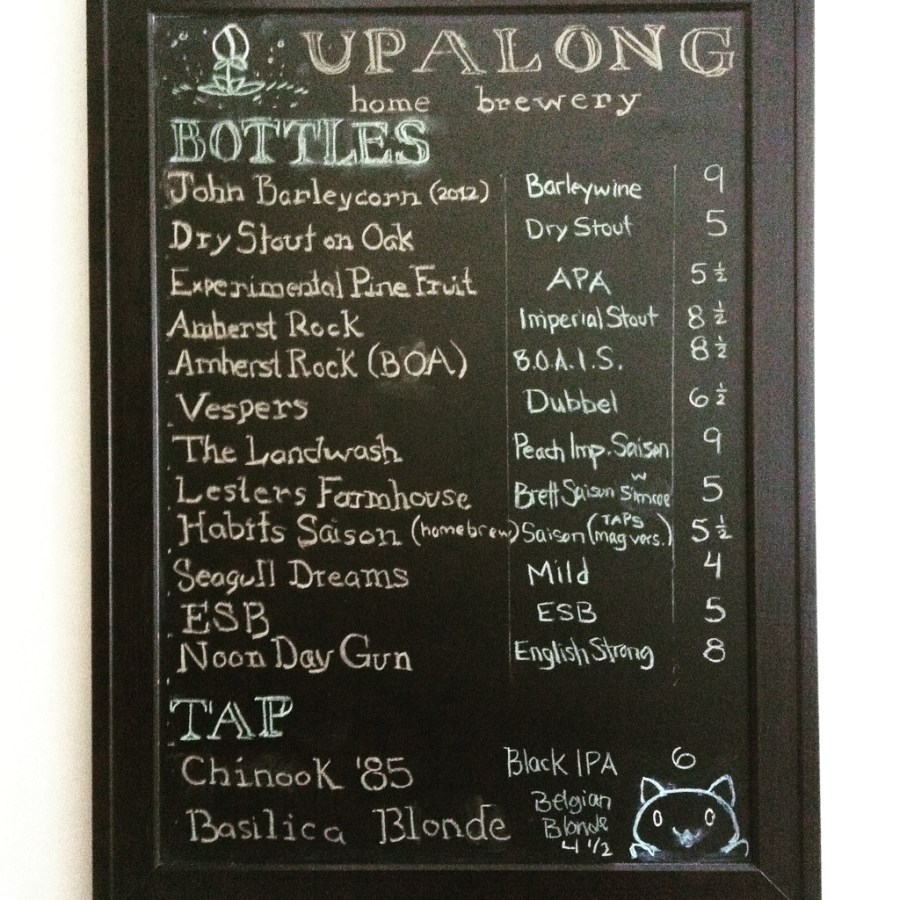 UPALONG
home brewery
BOTTLES
John Barleycorn (2012) Barleywine 9
Dry Stout on Oak Dry Stout 5
Experimental Pine Fruit APA 5 1/2
Amherst Rock Imperial Stout 8 1/2
Amherst Rock (BOA) B.O.A.I.S. 8 1/2
Vespers Dubbel 6 1/2
The Landwash Peach Imp. Saison 9
Lesters Farmhouse Brett Saison w Simcoe 5
Habits Saison (homebrew) Saison (TAPS mag vers.) 5 1/2
Seagull Dreams Mild 4
ESB ESB 5
Noon Day Gun English Strong 8
TAP
Chinook '85 Black IPA 6
Basilica Blonde Belgian Blonde 4 1/2